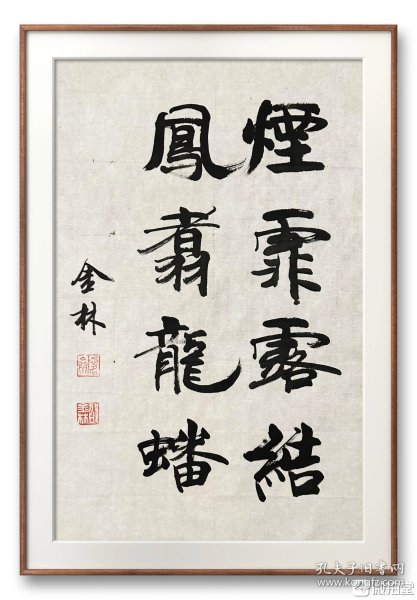 煙霏露結
鳳翥龍蟠
金林
孔夫子旧书网
www.kongfz.com
微拍堂